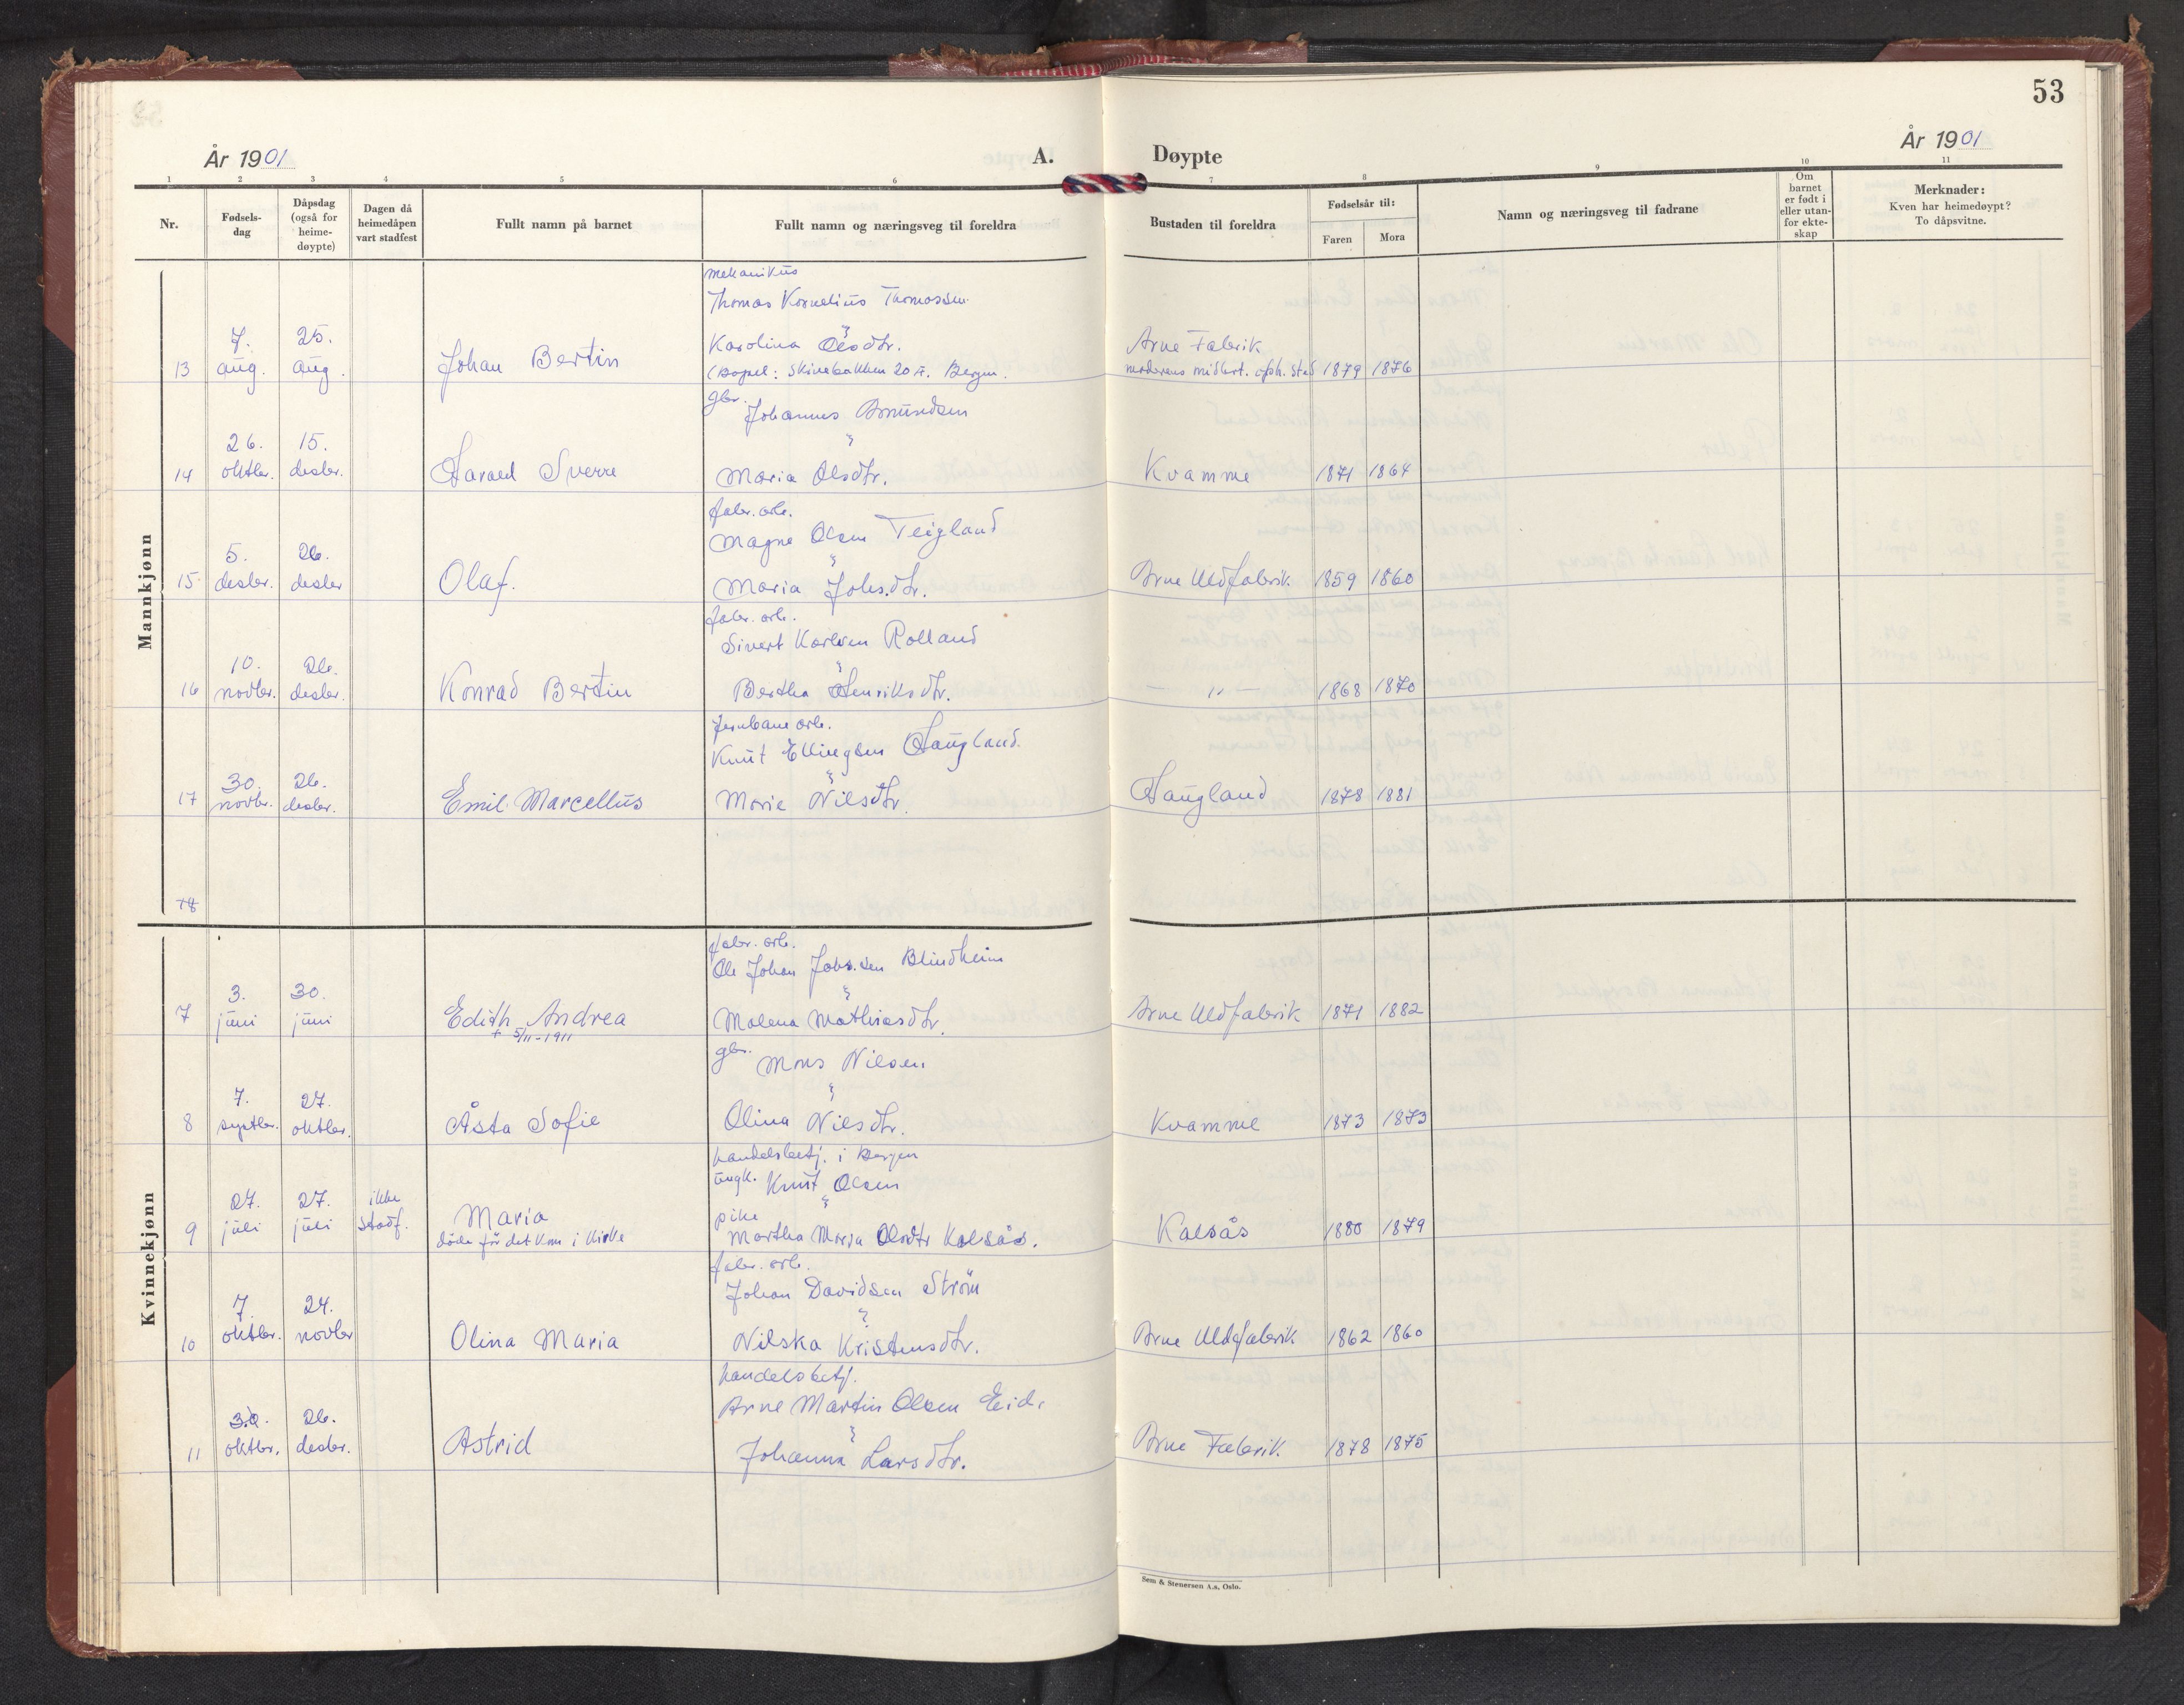 53
År 1901
A.
Døypte
År 1901
1 2 3 4 5 6 7 8 9 10 11
Nr.
Fødsels-
dag
Dåpsdag
(også for
heime-
døypte)
Dagen då
heimedåpen
vart stadfest
Fullt namn på barnet
Fullt namn og næringsveg til foreldra
Bustaden til foreldra
Fødselsår til:
Faren Mora
Namn og næringsveg til fadrane
Om
barnet
er født i
eller utan-
for ekte-
skap
Merknader:
Kven har heimedøypt?
To dåpsvitne.
Mannkjønn
mekanikus
Thomas Kornelius Thomassen
7. 25. Karolina Olsdtr. Arne Fabrik
13 aug. aug. Johan Bertin (bopel: Skivebakken 20 Bergen. moderens midlert. oph. sted 1879 1876
gbr. Johannes Amundsen
26. 15.
14 oktbr. desbr. Harald Sverre Maria Olsdtr. Kvamme 1871 1864
fabr. arb.
Magne Olsen Teigland
5. 26.
15 desbr. desbr Olaf. Maria Johs.dtr. Arne Uldfabrik 1859 1860
fabr. arb.
Sivert Karlsen Rolland
10. 26.
16 novbr. desbr. Konrad Bertin Bertha Henriksdtr. — " — 1868 1870
Jernbane arb.
Knut Ellingsen Haugland.
30. 26.
17 novbr. desbr. Emil Marcellus Marie Nilsdtr. Haugland 1878 1881
18
Kvinnekjønn
fabr. arb.
Ole Johan Johs.sen Blindheim
3. 30.
7 juni juni Edith Andrea Malena Mathiasdtr. Arne Uldfabrik 1871 1882
+ 5/11-1911
gbr. Mons Nilsen
7. 27.
8 septbr. oktbr. Åsta Sofie Olina Nilsdtr. Kvamme 1873 1873
handelsbetj. i Bergen
ungk. Knut Olsen
27. 27. ikke pike
9 juli juli stadf. Maria Martha Maria Olsdtr Kalsås. Kalsås 1880 1879
döde för det kom i kirke
fabr. arb.
Johan Davidsen Ström
7. 24.
10 oktbr. novbr Olina Maria Nilska Kristensdtr. Arne Uldfabrik 1862 1860
handelsbetj.
Arne Martin Olsen Eid.
30. 26.
11 oktbr. desbr. Astrid Johanna Larsdtr. Arne Fabrik 1878 1875
Sem & Stenersen A.s, Oslo.